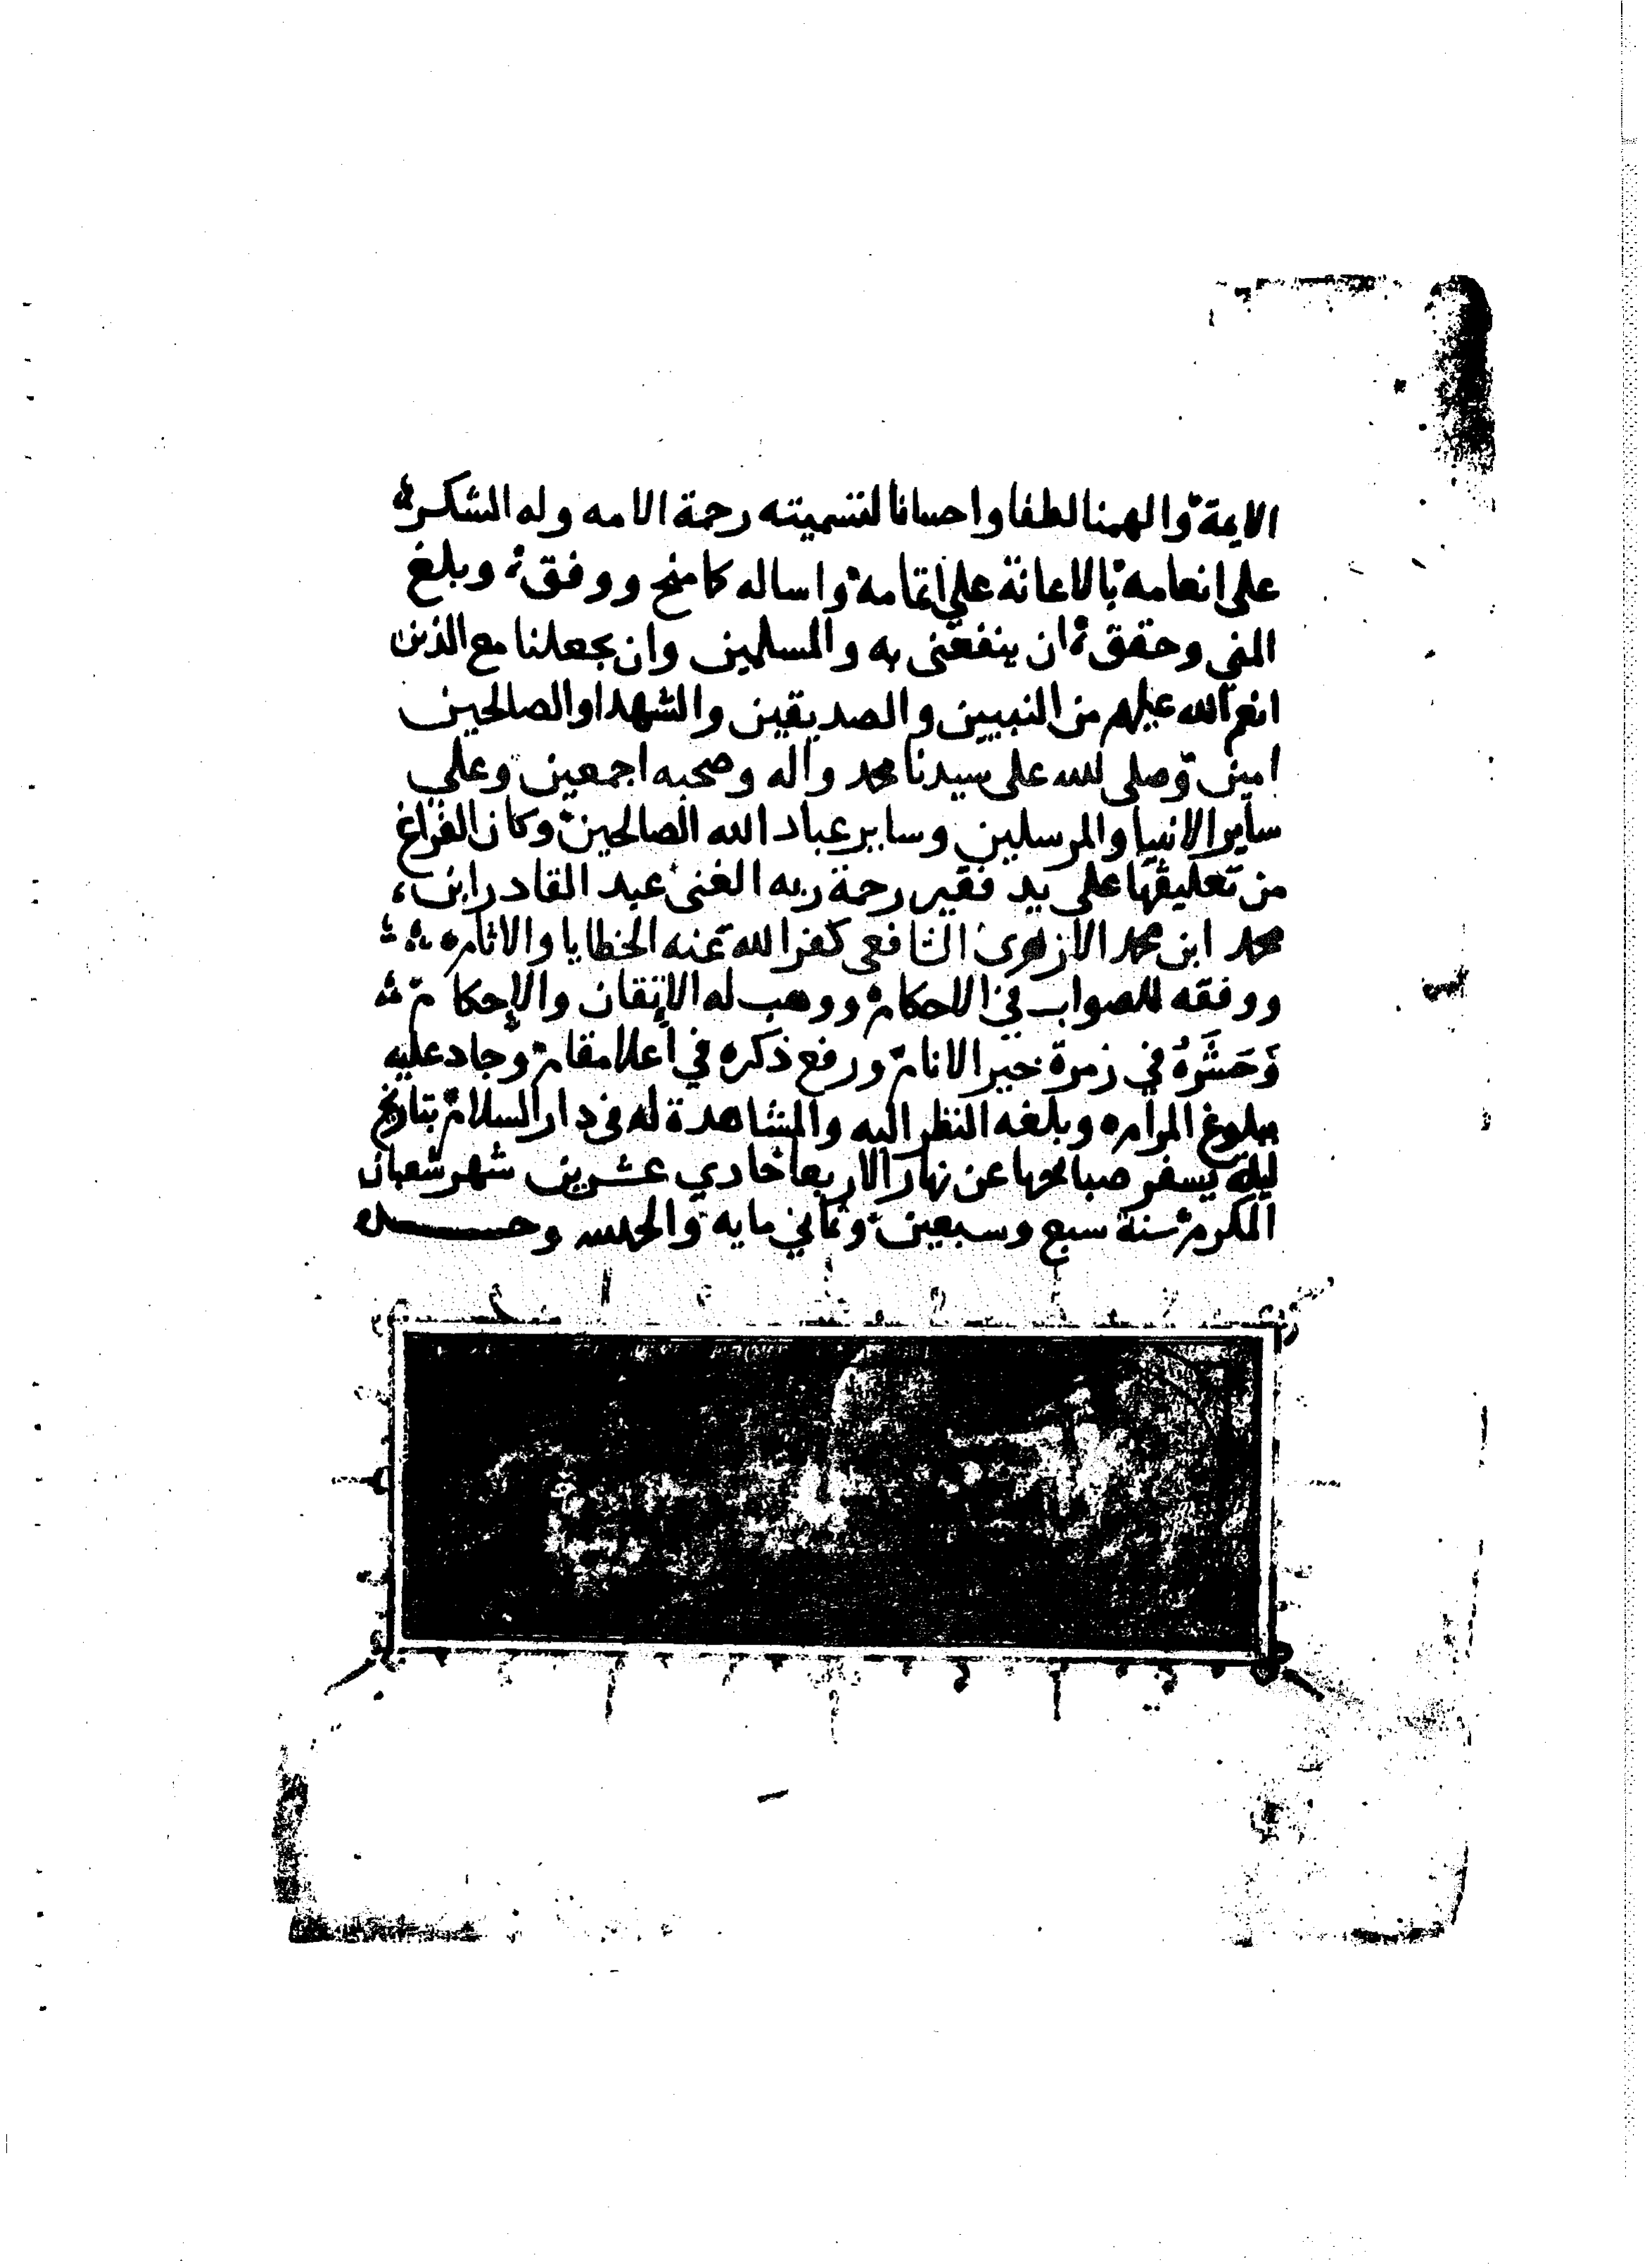 الايمة والهمنا لطفا واحسانا لتسميته رحمة الامه وله الشكر
على انعامه بالاعانة علي اتمامه واساله كما منح ووفق وبلغ
المني وحقق ان ينفعني به والمسلمين وان يجعلنا مع الذين
انعم الله عليهم من النبيين والصديقين والشهدا والصالحين
امين وصلى الله على سيدنا محمد واله وصحبه اجمعين وعلي
ساير الانبيا والمرسلين وساير عباد الله الصالحين وكان الفراغ
من تعليقها على يد فقير رحمة ربه الغنى عبد القادر ابن
محمد ابن محمد الازهرى الشافعى كفر الله عنه الخطايا والاثام
ووفقه للصواب في الاحكام ووهب له الإتقان والإحكام
وَحَشَرَهُ في زمرة خير الانام ورفع ذكره في أعلا مقام وجاد عليه
ببلوغ المرام وبلغه النظر اليه والمشاهدة له فى دار السلام بتاريخ
ليلة يسفر صباحها عن نهار الاربعا حادي عشرين شهر شعبان
المكرم سنة سبع وسبعين وثماني مايه والحمد لله وحده